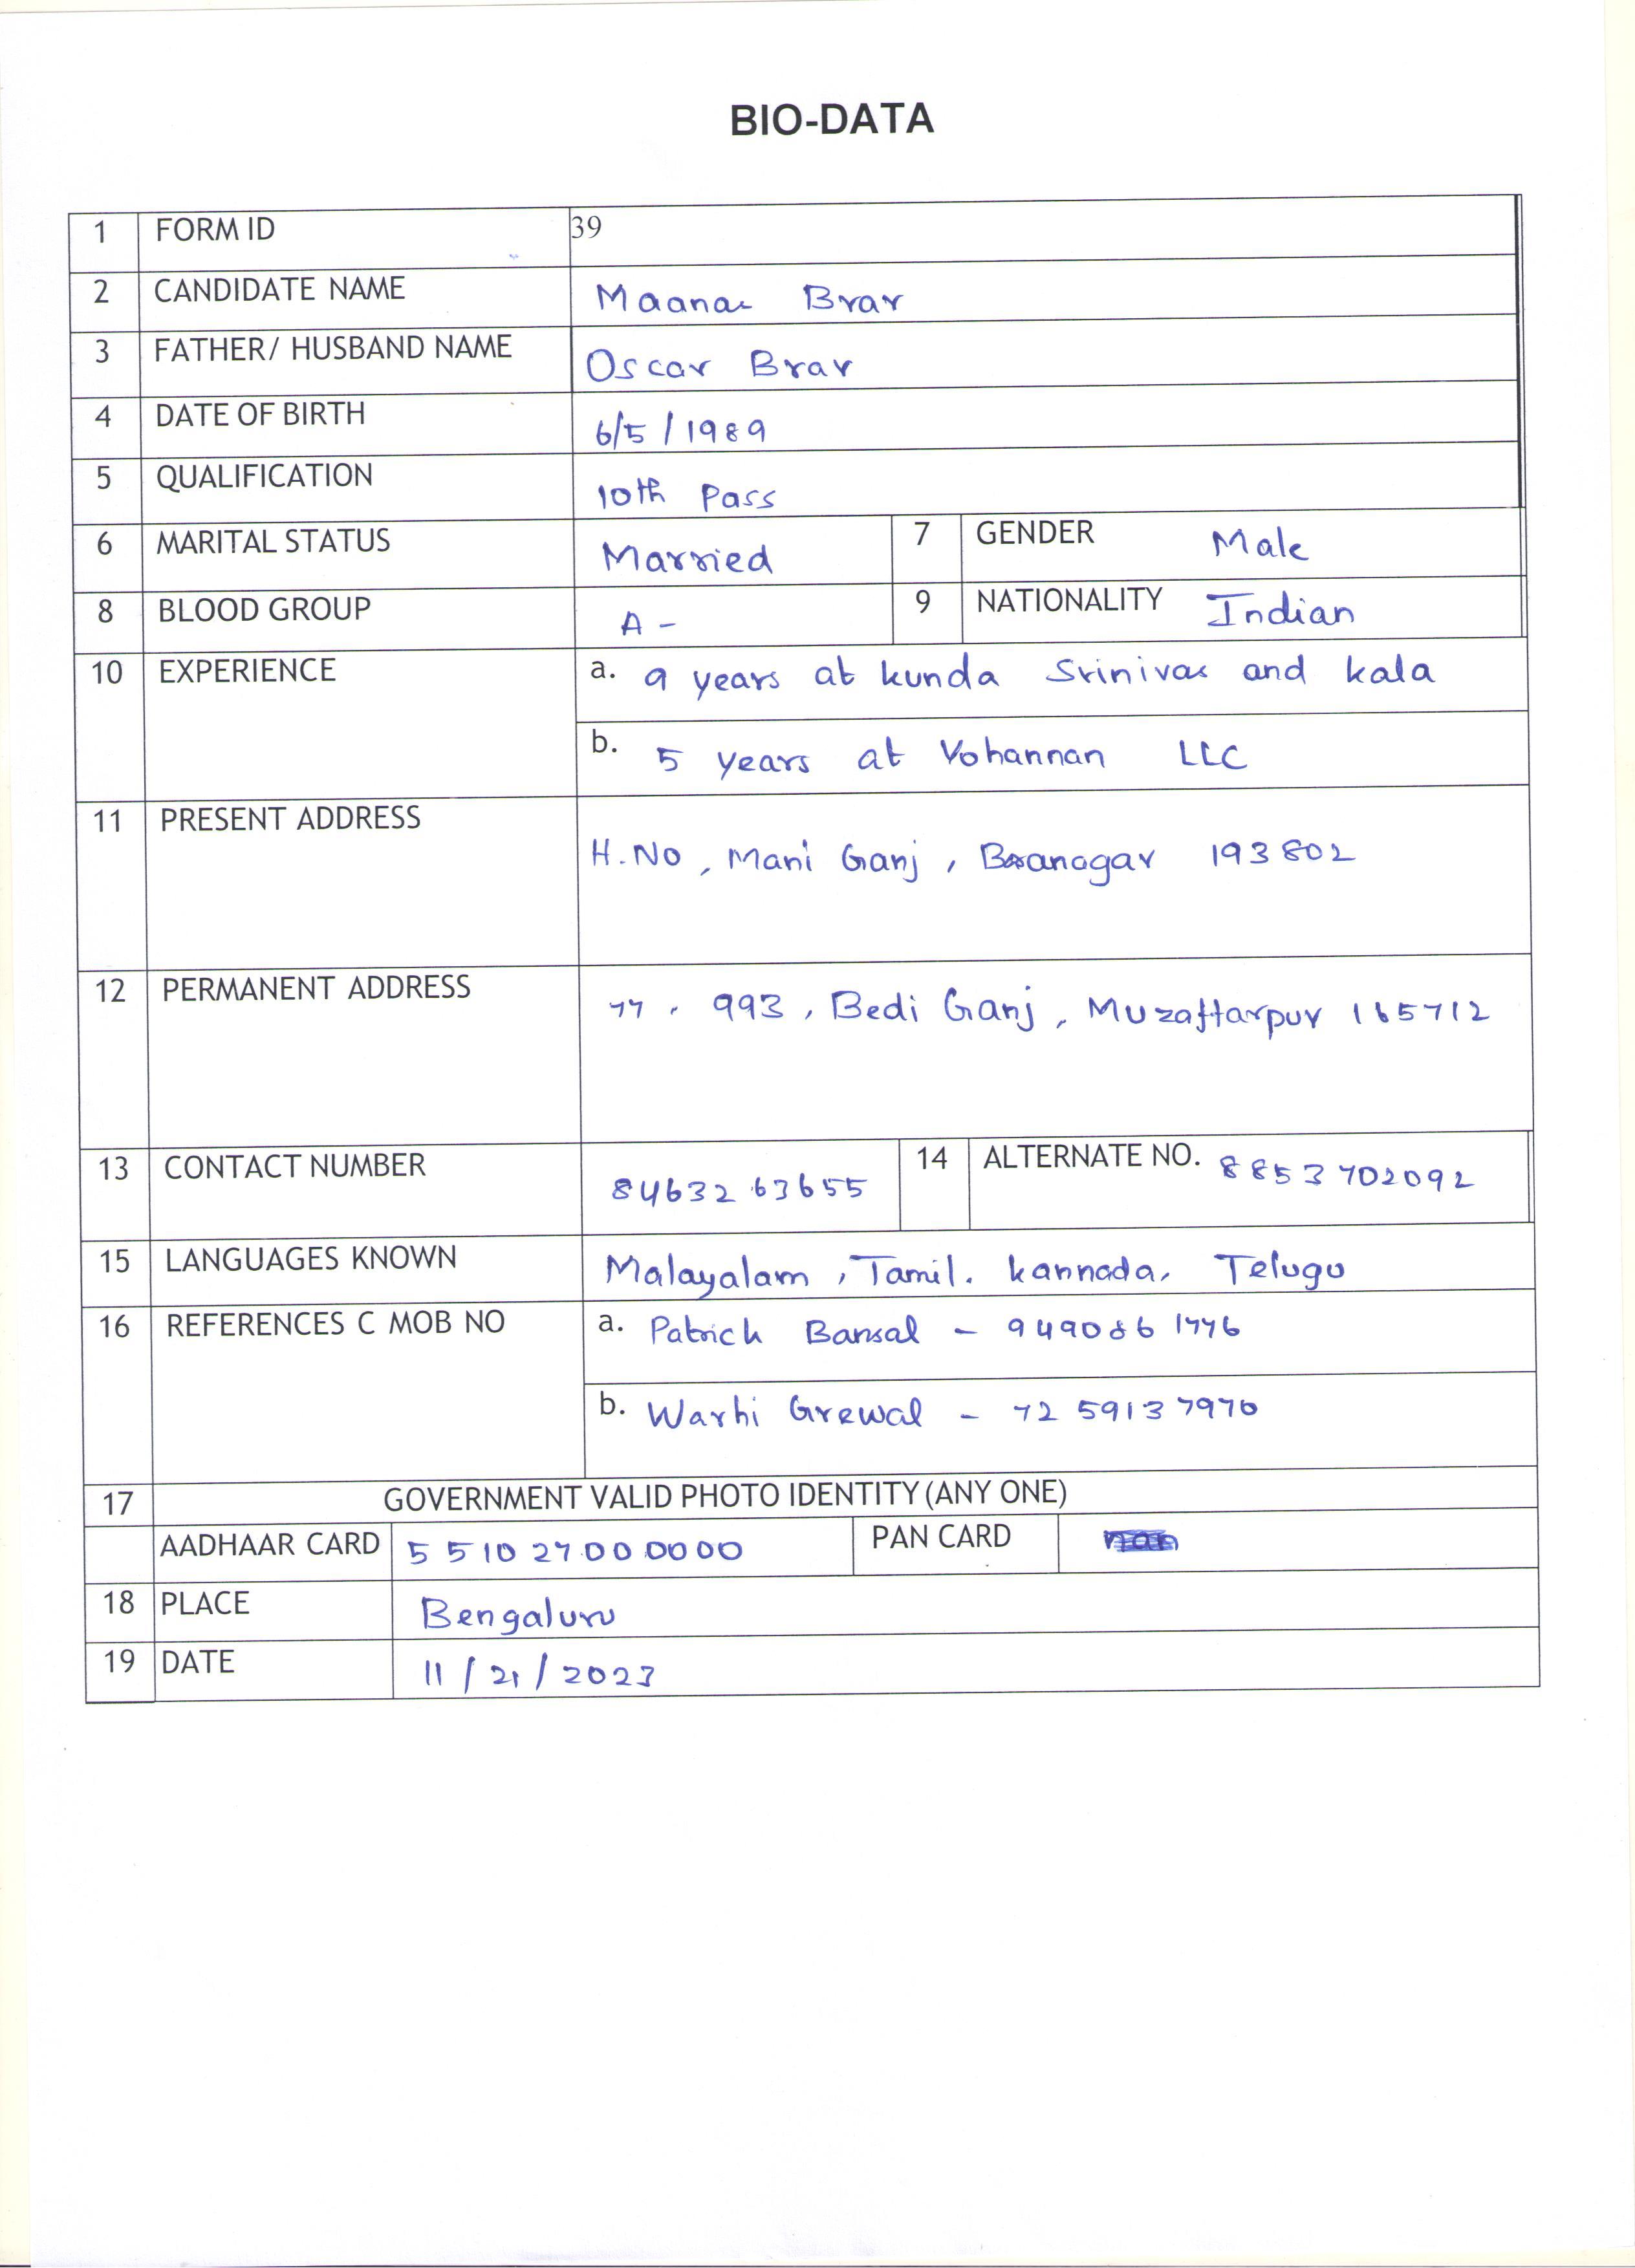 BIO-DATA
1 FORM ID 39
2 CANDIDATE NAME Maanas Brar
3 FATHER/ HUSBAND NAME Oscar Brar
4 DATE OF BIRTH 6/5/1989
5 QUALIFICATION 10th Pass
6 MARITAL STATUS Married 7 GENDER Male
8 BLOOD GROUP A- 9 NATIONALITY Indian
10 EXPERIENCE a. 9 years at kunda Srinivas and kala
b. 5 years at Yohannan LLC
11 PRESENT ADDRESS
H.No, Mani Ganj, Baranagar 193802
12 PERMANENT ADDRESS
77, 993, Bedi Ganj, Muzaffarpur 165712
13 CONTACT NUMBER 8463263655 14 ALTERNATE NO. 8853702092
15 LANGUAGES KNOWN Malayalam, Tamil. kannada, Telugu
16 REFERENCES C MOB NO a. Patrick Bansal - 9490861776
b. Warhi Grewal - 7259137976
17 GOVERNMENT VALID PHOTO IDENTITY (ANY ONE)
AADHAAR CARD 551027000000 PAN CARD
18 PLACE Bengaluru
19 DATE 11/21/2023